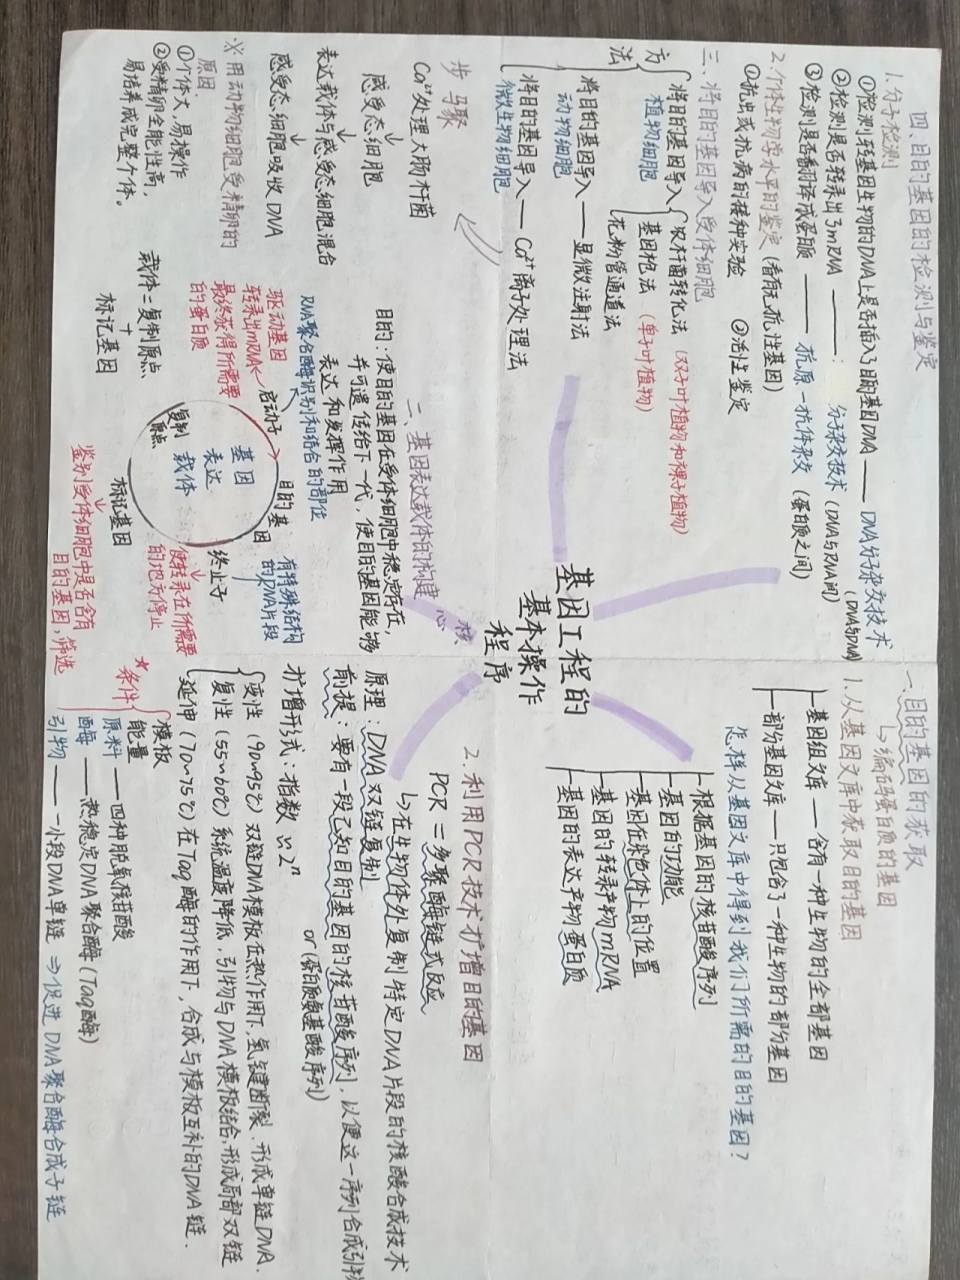 基因工程的
基本操作
程序
一、目的基因的获取
↳编码蛋白质的基因
1.从基因文库中获取目的基因
基因组文库——含有一种生物的全部基因
部分基因文库——只包含了一种生物的部分基因
怎样从基因文库中得到我们所需的目的基因？
根据基因的核苷酸序列
基因的功能
基因在染色体上的位置
基因的转录产物mRNA
基因的表达产物蛋白质
2.利用PCR技术扩增目的基因
PCR=多聚酶链式反应
↳在生物体外复制特定DNA片段的核酸合成技术
原理：DNA双链复制
前提：要有一段已知目的基因的核苷酸序列，以便这一序列合成引物
or(蛋白质氨基酸序列)
扩增形式：指数 以2ⁿ
变性（90~95℃）双链DNA模板在热作用下，氢键断裂，形成单链DNA.
复性（55~60℃）系统温度降低，引物与DNA模板结合，形成局部双链
延伸（70~75℃）在Taq酶的作用下，合成与模板互补的DNA链.
*条件
模板
能量
原料——四种脱氧核苷酸
酶——热稳定DNA聚合酶（Taq酶）
引物——一小段DNA单链 ⇒促进DNA聚合酶合成子链
核心
二、基因表达载体的构建
目的：使目的基因在受体细胞中稳定存在，
并可遗传给下一代，使目的基因能够
表达和发挥作用
RNA聚合酶识别和结合的部位
驱动基因
转录出mRNA
最终获得所需要
的蛋白质
启动子
目的基因
有特殊结构
的DNA片段
终止子
使转录在所需要
的地方停止
基因
表达
载体
复制
原点
标记基因
鉴别受体细胞中是否含有
目的基因，筛选
载体=复制原点
+
标记基因
三、将目的基因导入受体细胞
方法
将目的基因导入
植物细胞
农杆菌转化法（双子叶植物和裸子植物）
基因枪法（单子叶植物）
花粉管通道法
将目的基因导入——显微注射法
动物细胞
将目的基因导入——Ca²⁺离子处理法
微生物细胞
步骤
Ca²⁺处理大肠杆菌
↓
感受态细胞
↓
表达载体与感受态细胞混合
↓
感受态细胞吸收DNA
※用动物细胞受精卵的
原因.
①个体大，易操作
②受精卵全能性高，
易培养成完整个体。
四、目的基因的检测与鉴定
1.分子检测
①检测转基因生物的DNA上是否插入了目的基因DNA——DNA分子杂交技术（DNA与DNA）
②检测是否转录出了mRNA——：分子杂交技术（DNA与RNA间）
③检测是否翻译成蛋白质——抗原-抗体杂交（蛋白质之间）
2.个体生物学水平的鉴定（看有无抗性基因）
①抗虫或抗病的接种实验 ②活性鉴定